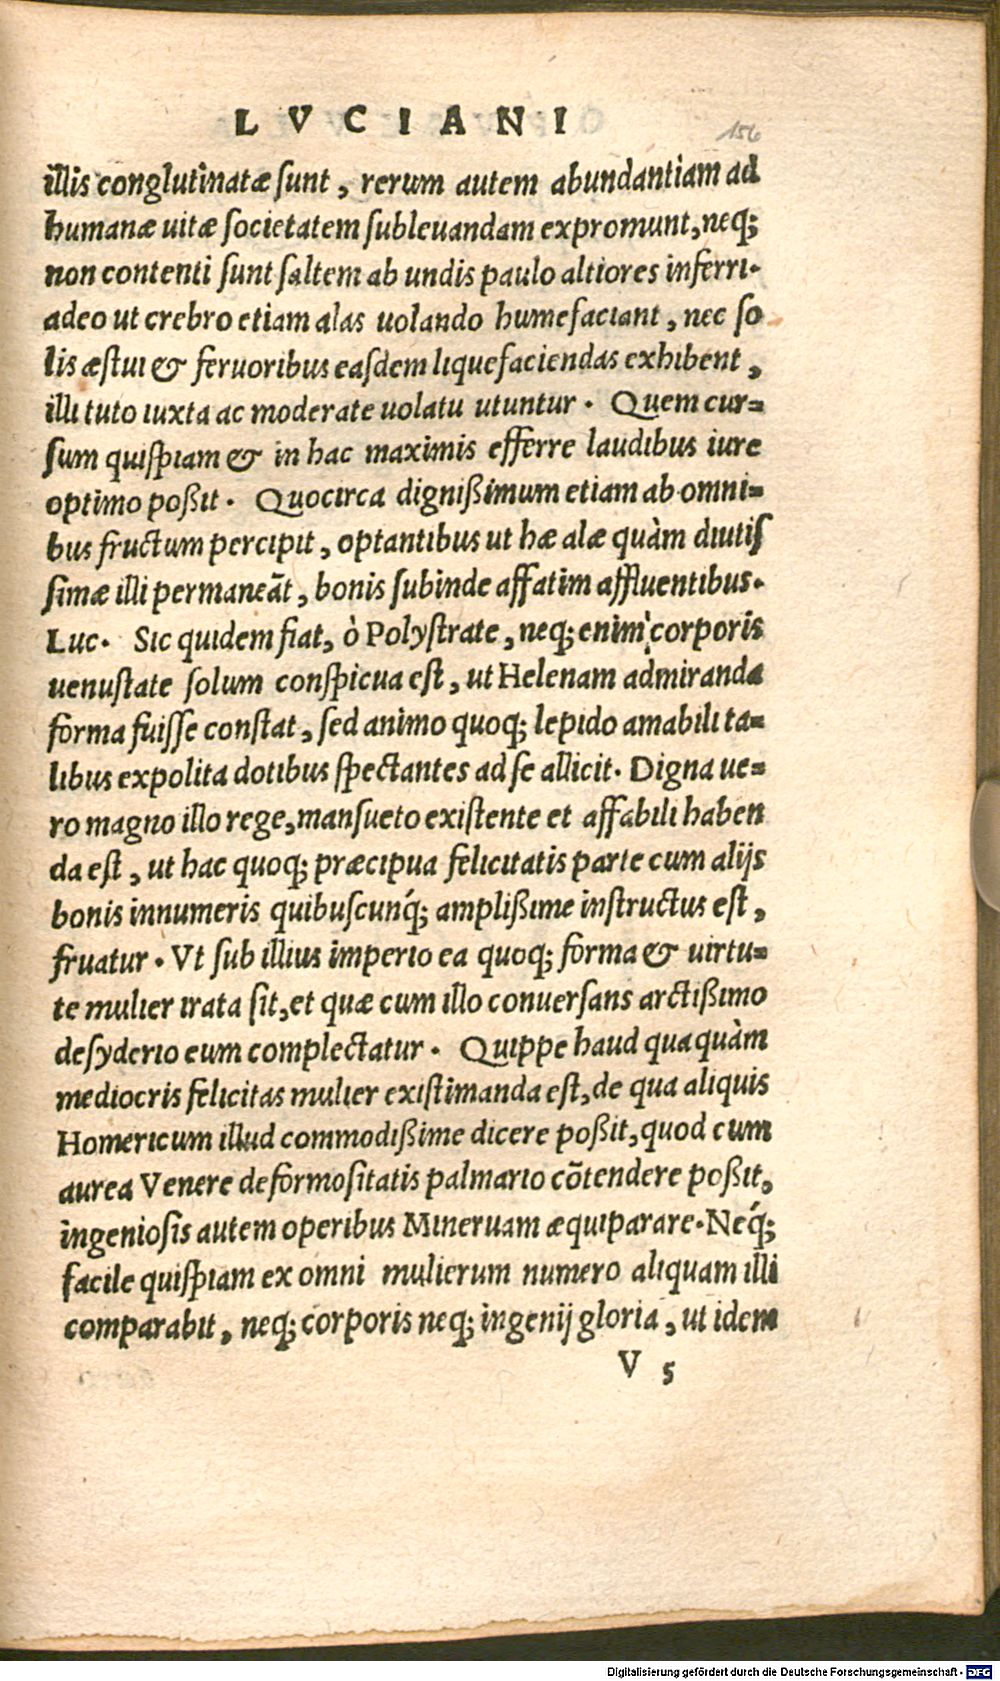 LVCIANI
156
illis conglutinatæ sunt, rerum autem abundantiam ad
humanæ uitæ societatem subleuandam expromunt, neq;
non contenti sunt saltem ab undis paulo altiores inferri.
adeo ut crebro etiam alas uolando humefaciant, nec so
lis æstui & feruoribus easdem liquefaciendas exhibent,
illi tuto iuxta ac moderate uolatu utuntur. Quem cur=
sum quispiam & in hac maximis efferre laudibus iure
optimo poßit. Quocirca dignißimum etiam ab omni=
bus fructum percipit, optantibus ut hæ alæ quàm diutis
simæ illi permaneãt, bonis subinde affatim affluentibus.
Luc. Sic quidem fiat, ò Polystrate, neq; enim corporis
uenustate solum conspicua est, ut Helenam admiranda
forma fuisse constat, sed animo quoq; lepido amabili ta=
libus expolita dotibus spectantes ad se allicit. Digna ue=
ro magno illo rege, mansueto existente et affabili haben
da est, ut hac quoq; præcipua felicitatis parte cum alijs
bonis innumeris quibuscunq́; amplißime instructus est,
fruatur. Vt sub illius imperio ea quoq; forma & uirtu=
te mulier irata sit, et quæ cum illo conuersans arctißimo
desyderio eum complectatur. Quippe haud quaquàm
mediocris felicitas mulier existimanda est, de qua aliquis
Homericum illud commodißime dicere poßit, quod cum
aurea Venere de formositatis palmario cõtendere poßit,
ingeniosis autem operibus Mineruam æquiparare. Neq́;
facile quispiam ex omni mulierum numero aliquam illi
comparabit, neq; corporis neq; ingenij gloria, ut idem
V 5
Digitalisierung gefördert durch die Deutsche Forschungsgemeinschaft - DFG